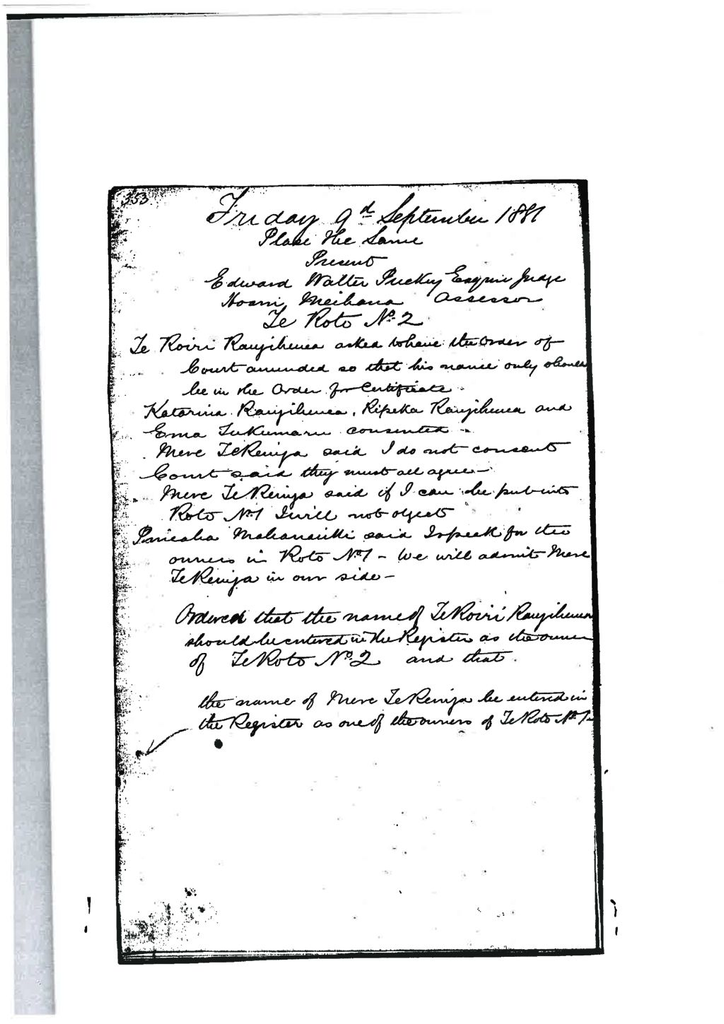 353
Friday 9th September 1881
Place the Same
Present
Edward Walter Puckey Esquire Judge
Hoani Meihana Assessor
Te Roto No 2
Te Roiri Rangiheuea asked to have the Order of
Court amended so that his name only should
be in the Order for Certificate -
Katarina Rangiheuea, Ripeka Rangiheuea and
Ema Tukumaru consented -
Mere Te Reinga said I do not consent
Court said they must all agree -
Mere Te Reinga said if I can be put into
Roto No 1 I will not object
said I speak for the
owners in Roto No 1 - We will admit Mere
Te Reinga in our side -
Ordered that the name of Te Roiri Rangiheuea
should be entered in the Register as the owner
of Te Roto No 2 and that .
the name of Mere Te Reinga be entered in
the Register as one of the owners of Te Roto No 1 -